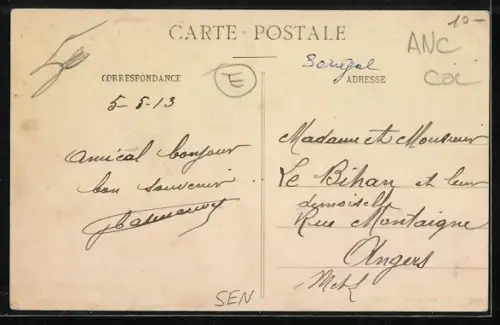 10-
CARTE POSTALE
ANC
Coi
Sénégal
CORRESPONDANCE
E
ADRESSE
5-5-13
Amical bonjour
bon souvenir
Madame et Monsieur
Le Bihan et leur
demoiselle
Rue Montaigne
Angers
M et L
SEN